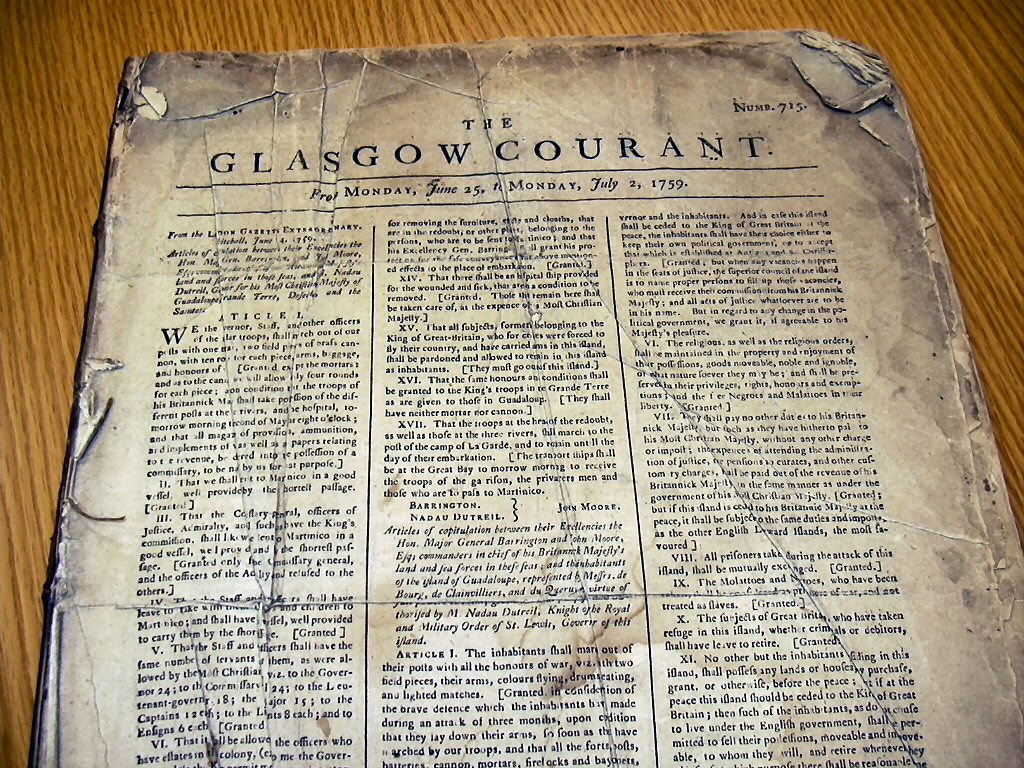 NUMB. 715.
THE
GLASGOW COURANT.
From MONDAY, June 25, to MONDAY, July 2, 1759.
From the LONDON GAZETTE EXTRAORDINARY.
Whitehall, June 14. 1759.
Articles of between their Excellencies the
Hon. Gen. Moore,
land and forces in those seas, and Nadau
Dutreil, for his Most Christian Majesty of
Guadaloupe, Grande Terre, and the
ARTICLE I.
WE the Governor, Staff, and other officers
of the troops, shall march out of our
posts with one two field pieces of brass can-
non, with ten for each piece, arms, baggage,
and honours of [Granted except the mortars:
and as to the we will allow four round
for each piece; condition the troops of
his Britannick shall take possession of the dif-
ferent posts at the rivers, and the hospital, to-
morrow morning second of May at eight o'clock;
and that all magazines of provision, ammunition,
and implements of as well as papers relating
to the revenue, be into possession of a
commissary, to be by us for that purpose.]
II. That we shall to Martinico in a good
vessel, well provided by the shortest passage.
[Granted]
III. That the general, officers of
Justice, Admiralty, and such have the King's
commission, shall likewise to Martinico in a
good vessel, well provided and the shortest pas-
sage. [Granted only the Commissary general,
and the officers of the Admiralty and refused to the
others.]
IV. That the Staff and officers shall have
leave to take with their and children to
Martinico; and shall have vessel, well provided
to carry them by the shortest [Granted]
V. That the Staff and officers shall have the
same number of servants as were al-
lowed by the Most Christian viz. to the Gover-
nor 24; to the Commissary 24; to the Lieu-
tenant-governor 18; the Major 15; to the
Captains 12 each; to the Lieutenants 8 each; and to
Ensigns 6 each. [Granted
VI. That it shall be allowed the officers who
have estates in colony, me the Gover-
for removing the furniture, and cloaths, that
are in the redoubt, or other belonging to the
persons, who are to be sent to Martinico; and that
his Excellency Gen. Barrington shall grant his pro-
tection for the safe conveyance of the above mention-
ed effects to the place of embarkation. [Granted.]
XIV. That there shall be an hospital ship provided
for the wounded and sick, that are in a condition to be
removed. [Granted. Those that remain here shall
be taken care of, at the expence of a Most Christian
Majesty.]
XV. That all subjects, formerly belonging to the
King of Great-Britain, who for crimes were forced to
fly their country, and have carried arms in this island,
shall be pardoned and allowed to remain in this island
as inhabitants. [They must go out of this island.]
XVI. That the same honours and conditions shall
be granted to the King's troops in the Grande Terre
as are given to those in Guadaloup. [They shall
have neither mortar nor cannon.]
XVII. That the troops at the head of the redoubt,
as well as those at the three rivers, shall march to the
post of the camp of La Garde, and to remain until the
day of their embarkation. [The transport ships shall
be at the Great Bay to morrow morning to receive
the troops of the garrison, the privateers men and
those who are to pass to Martinico.
BARRINGTON. } JOHN MOORE.
NADAU DUTREIL.
Articles of capitulation between their Excellencies the
Hon. Major General Barrington and John Moore,
Esq; commanders in chief of his Britannick Majesty's
land and sea forces in these seas; and the inhabitants
of the island of Guadaloupe, represented by Messrs. de
Bourg, de Clainvilliers, and du Querus, virtue of
thorised by M. Nadau Dutreil, Knight of the Royal
and Military Order of St. Lewis, Governor of this
island.
ARTICLE I. The inhabitants shall march out of
their posts with all the honours of war, viz. with two
field pieces, their arms, colours flying, drums beating,
and lighted matches. [Granted, in consideration of
the brave defence which the inhabitants have made
during an attack of three months, upon condition
that they lay down their arms, so soon as they have
marched by our troops, and that all the forts, posts,
batteries, cannon, mortars, firelocks and bayonets,
vernor and the inhabitants. And in case this island
shall be ceded to the King of Great Britain at the
peace, the inhabitants shall have their choice either to
keep their own political government, or to accept
that which is established at
[Granted; but when any vacancies happen
in the seats of justice, the superior council of the island
is to name proper persons to fill up those vacancies,
who must receive their commissions from his Britannick
Majesty; and all acts of justice whatsoever are to be
in his name. But in regard to any change in the po-
litical government, we grant it, if agreeable to his
Majesty's pleasure.
VI. The religious, as well as the religious orders,
shall be maintained in the property and enjoyment of
their possessions, goods moveable, noble and ignoble,
of what nature soever they may be; and shall be pre-
served in their privileges, rights, honours and exemp-
tions; and the free Negroes and Malattoes in their
liberty. [Granted.]
VII. They shall pay no other duties to his Britan-
nick Majesty, but such as they have hitherto paid to
his Most Christian Majesty, without any other charge
or impost; the expences of attending the administra-
tion of justice, the pensions to curates, and other cus-
tomary charges, shall be paid out of the revenue of his
Britannick Majesty, in the same manner as under the
government of his Most Christian Majesty. [Granted;
but if this island is ceded to his Britannic Majesty at the
peace, it shall be subject to the same duties and imposts
as the other English Leeward Islands, the most fa-
voured]
VIII. All prisoners taken during the attack of this
island, shall be mutually exchanged. [Granted.]
IX. The Molattoes and Negroes, who have been
shall be as prisoners of war, and not
treated as slaves. [Granted.]
X. The subjects of Great Britain, who have taken
refuge in this island, whether criminals or debitors,
shall have leave to retire. [Granted.
XI. No other but the inhabitants residing in this
island, shall possess any lands or houses by purchase,
grant, or otherwise, before the peace; but if at the
peace this island should be ceded to the King of Great
Britain; then such of the inhabitants, as do not chuse
to live under the English government, shall be per-
mitted to sell their possessions, moveable and immove-
able, to whom they will, and retire whenever they